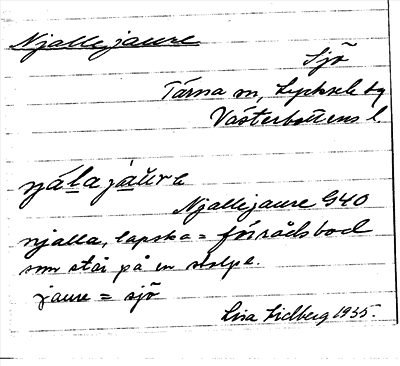 Njallejaure
Sjö
Tärna sn, Lycksele tg
Västerbottens l.
njála jaŭrɛ
Njallejaure G40
njalla, lapska = förrådsbod
som står på en stolpe.
jaure = sjö
Lisa Lidberg 1935.